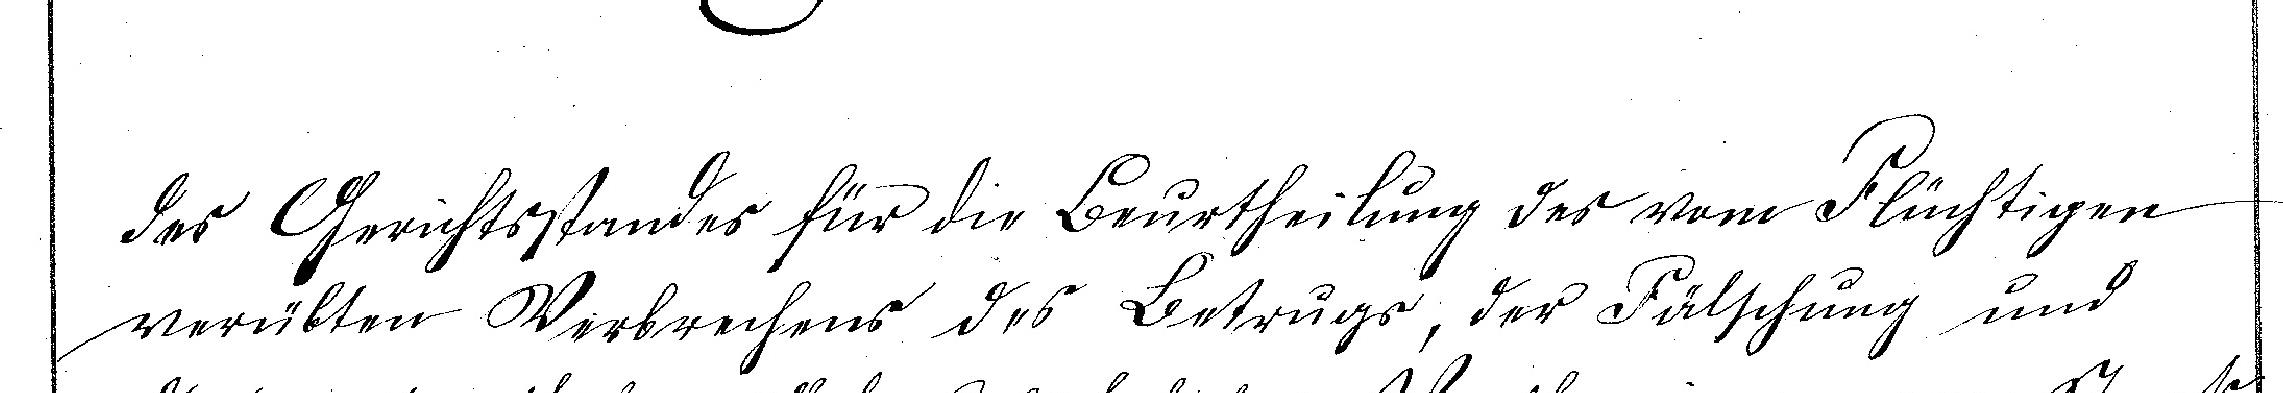 des Gerichtsstandes für die Beurtheilung des vom Flüchtigen
verübten Verbrechens des Betrugs, der Fälschung und